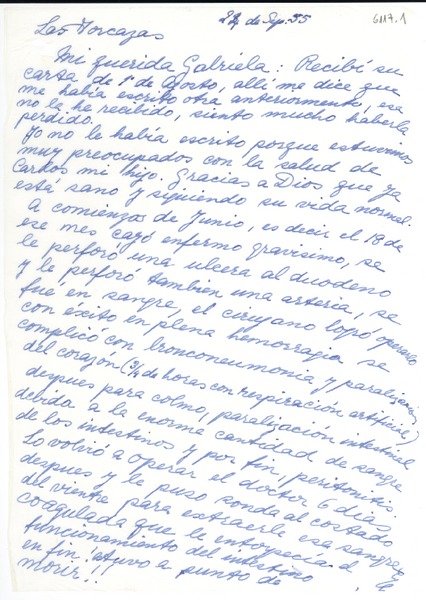 22 de Sep. 55
6117.1
Las Torcazas
Mi querida Gabriela: Recibí su
carta de 1º de Agosto, allí me dice que
me había escrito otra anteriormente, esa
no la he recibido, siento mucho haberla
perdido.
Yo no le había escrito porque estuvimos
muy preocupados con la salud de
Carlos mi hijo. Gracias a Dios que ya
está sano y siguiendo su vida normal.
A comienzos de Junio, es decir el 18 de
ese mes cayó enfermo gravisimo, se
le perforó una ulcera al duodeno
y le perforó también una arteria, se
fué en sangre, el cirujano logró operarlo
con éxito en plena hemorragia se
complicó con bronconeumonia y paralización
del corazón (3/4 de horas con respiración artificial)
despues para colmo, paralización intestinal
debida a la enorme cantidad de sangre
de los intestinos y por fin, peritonitis.
Lo volvió a operar el doctor 6 dias
despues y le puso sonda al costado
del vientre para extraerle esa sangre
coagulada que le entorpecía el
funcionamiento del intestino
en fin estuvo a punto de
morir!!